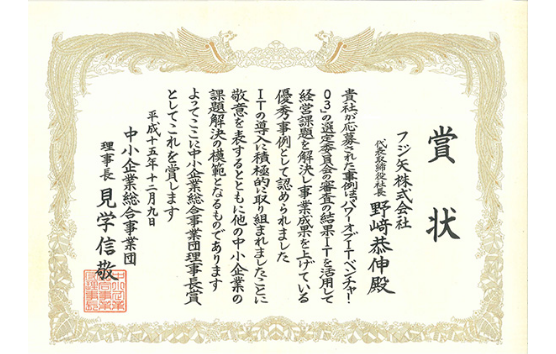 賞状
フジ矢株式会社
代表取締役社長 野﨑恭伸殿
貴社が応募された事例は「パワーオブITベンチャー!
03」の選定委員会の審査の結果ITを活用して
経営課題を解決し事業成果を上げている
優秀事例として認められました
ITの導入に積極的に取り組まれましたことに
敬意を表するとともに他の中小企業の
課題解決の模範となるものであります
よってここに中小企業総合事業団理事長賞
としてこれを賞します
平成十五年十二月九日
中小企業総合事業団
理事長 見学信敬